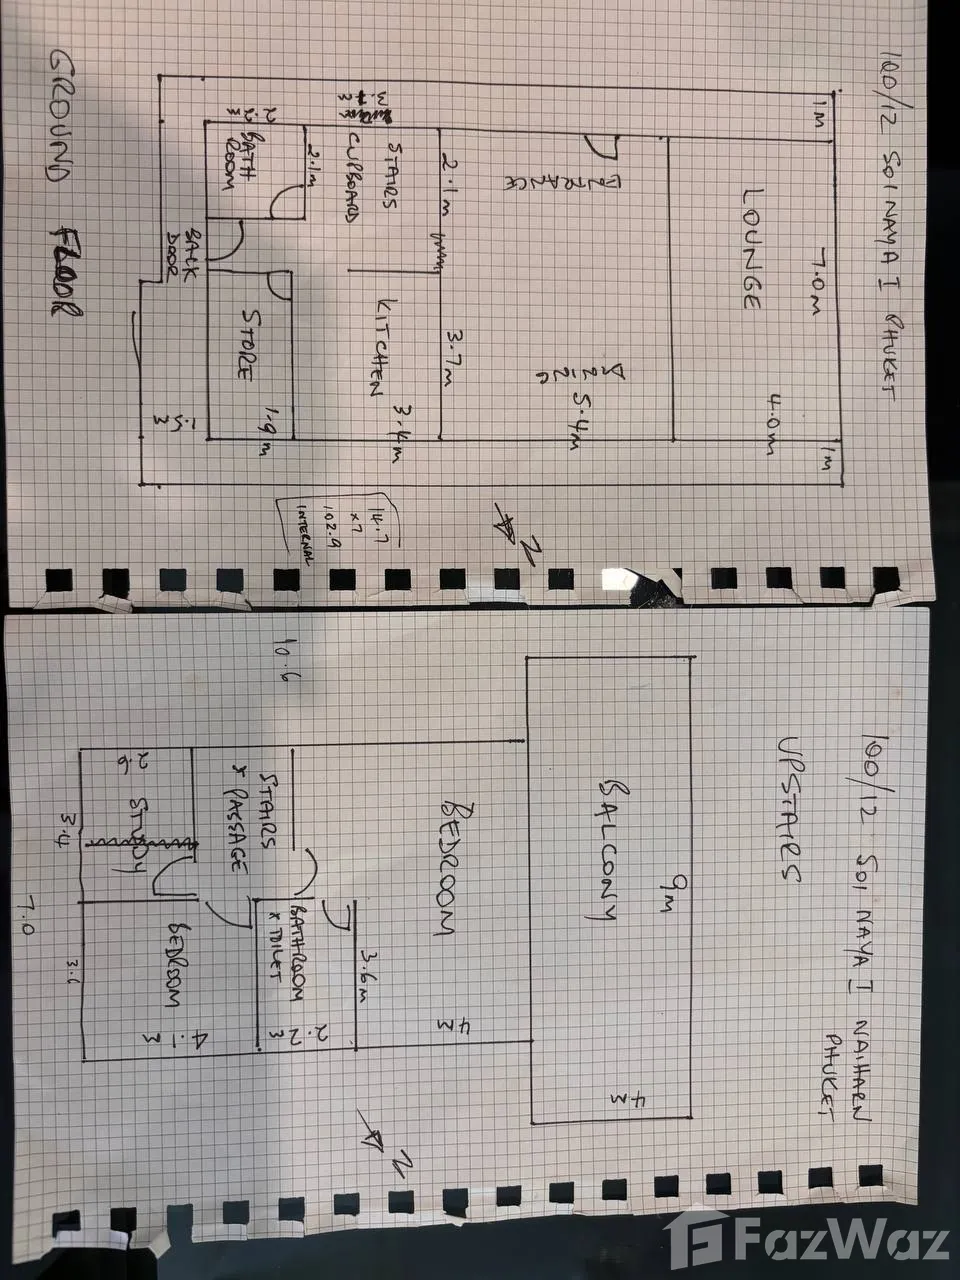 100/12 SOI NAYA I PHUKET
1M
7.0M
1M
LOUNGE
4.0M
ENTRANCE
5.4M
2.1M
3.7M
STAIRS
CUPBOARD
KITCHEN
3.4M
2.1M
BATH
ROOM
STORE
1.9M
BACK
DOOR
GROUND FLOOR
14.7
x7
102.9
INTERNAL
N
100/12 SOI NAYA I NAIHARN
PHUKET
UPSTAIRS
9M
BALCONY
4M
BEDROOM
4M
3.6M
BATHROOM
x TOILET
2.2M
STAIRS
x PASSAGE
BEDROOM
4.1M
STUDY
2.6
3.4
3.6
7.0
10.6
N
FazWaz